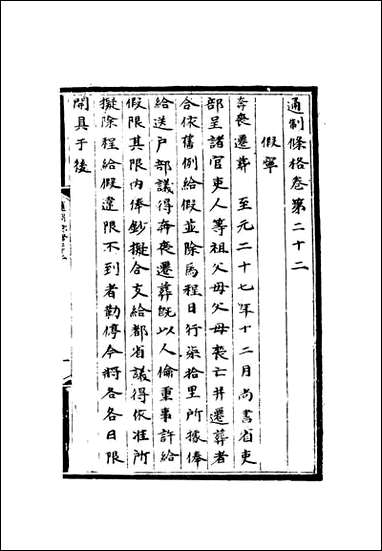 通制條格卷第二十二
假寧
奔喪遷葬 至元二十七年十二月尚書省吏
部呈諸官吏人等祖父母父母喪亡并遷葬者
合依舊例給假並除馬程日行柒拾里所據俸
給送户部議得奔喪遷葬既以人倫重事許給
假限其限内俸鈔擬合支給都省議得依准所
擬除程給假違限不到者勒停今將各各日限
開具于後